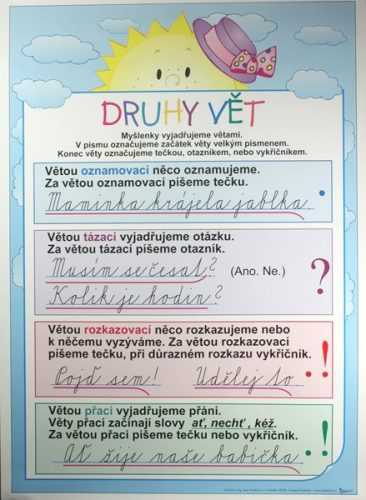 DRUHY VĚT
Myšlenky vyjadřujeme větami.
V písmu označujeme začátek věty velkým písmenem.
Konec věty označujeme tečkou, otazníkem, nebo vykřičníkem.
Větou oznamovací něco oznamujeme.
Za větou oznamovací píšeme tečku.
Maminka krájela jablka.
Větou tázací vyjadřujeme otázku.
Za větou tázací píšeme otazník.
Musím se česat? (Ano. Ne.) ?
Kolik je hodin?
Větou rozkazovací něco rozkazujeme nebo
k něčemu vyzýváme. Za větou rozkazovací
píšeme tečku, při důrazném rozkazu vykřičník.
Pojď sem! Udělej to. . !
Větou přací vyjadřujeme přání.
Věty přací začínají slovy ať, nechť, kéž.
Za větou přací píšeme tečku nebo vykřičník. . !
Ať žije naše babička!